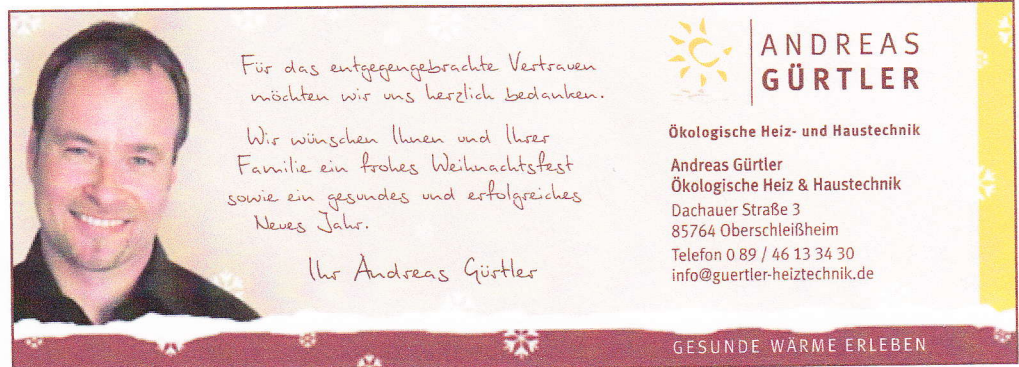 Für das entgegengebrachte Vertrauen
möchten wir uns herzlich bedanken.
Wir wünschen Ihnen und Ihrer
Familie ein frohes Weihnachtsfest
sowie ein gesundes und erfolgreiches
Neues Jahr.
Ihr Andreas Gürtler
ANDREAS
GÜRTLER
Ökologische Heiz- und Haustechnik
Andreas Gürtler
Ökologische Heiz & Haustechnik
Dachauer Straße 3
85764 Oberschleißheim
Telefon 0 89 / 46 13 34 30
info@guertler-heiztechnik.de
GESUNDE WÄRME ERLEBEN